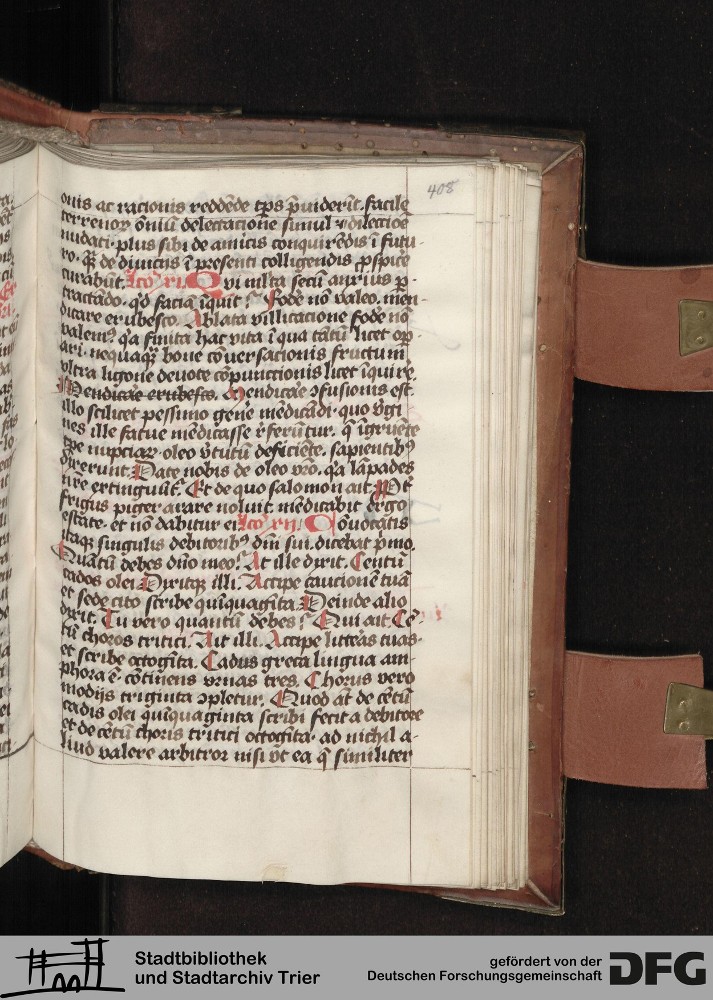 408
onis ac racionis reddēde tp̄s p̄uiderit. facile
terrenoꝝ om̄iū delectacione simul ⁊ dilectiōe
nudati. plus sibi de amicis conquirēdis ī futu-
ro. qȝ de diuiciis ī presenti colligendis ꝓspice
curabūt. Qui multa secū anxius ꝑ-
tractādo. qd̓ faciā īquit? Fodē nō valeo. men-
dicare erubesco. Ablata villicatione fodē nō
valemꝰ. qꝛ finita hac vita ī qua tātū licet oꝑ-
ari. nequaqȝ bone cōuersacionis fructum
vltra ligone deuote cōpunctionis licet īquirē.
Mendicāe erubesco. Mendicāe ꝯfusionis est.
illo scilicet pessimo genē mēdicādi. quo v̓gi
nes ille fatue mēdicasse r̄ferūtur. q̄ īgruēte
tꝑe nupciaꝝ. oleo v̓tutū deficiēte. sapientibꝫ
dixerunt. Date nobis de oleo vr̄o. qꝛ lāpades
nr̄e extinguūt᷑. Et de quo salomon ait. Pt̄
frigus piger arare noluit. mēdicabit ergo
estate. et nō dabitur ei. Cōuocatis
itaqȝ singulis debitoribꝫ dn̄i sui. dicebat p̄mo.
Quātū debes dn̄o meo? At ille dixit. Centū
cados olei. Dixitqȝ illi. Accipe cautionē tuā
et sede cito scribe quīquagīta. Deinde alio
dixit. Tu vero quantū debes? Qui ait. Cē-
tū choros tritici. Ait illi. Accipe litteas tuas.
et scribe octogīta. Cadus greca lingua am-
phora ē. cōtinens vrnas tres. Chorus vero
modijs triginta ꝯpletur. Quod aūt de cētū
cadis olei quīquaginta scribi fecit a debitore
et de cētū choris tritici octogīta. ad nichil a-
liud valere arbitror nisi vt ea q̄ similiter
Stadtbibliothek
und Stadtarchiv Trier
gefördert von der
Deutschen Forschungsgemeinschaft
DFG